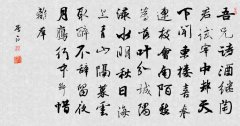 吾兄詩酒継陶
君試宰中都天
下闻東楼喜奉
連枝會南陌愁
為落葉分城隅
渌水明秋日海
上青山隔暮雲
取醉不辞留夜
月雁行中断惜
離群